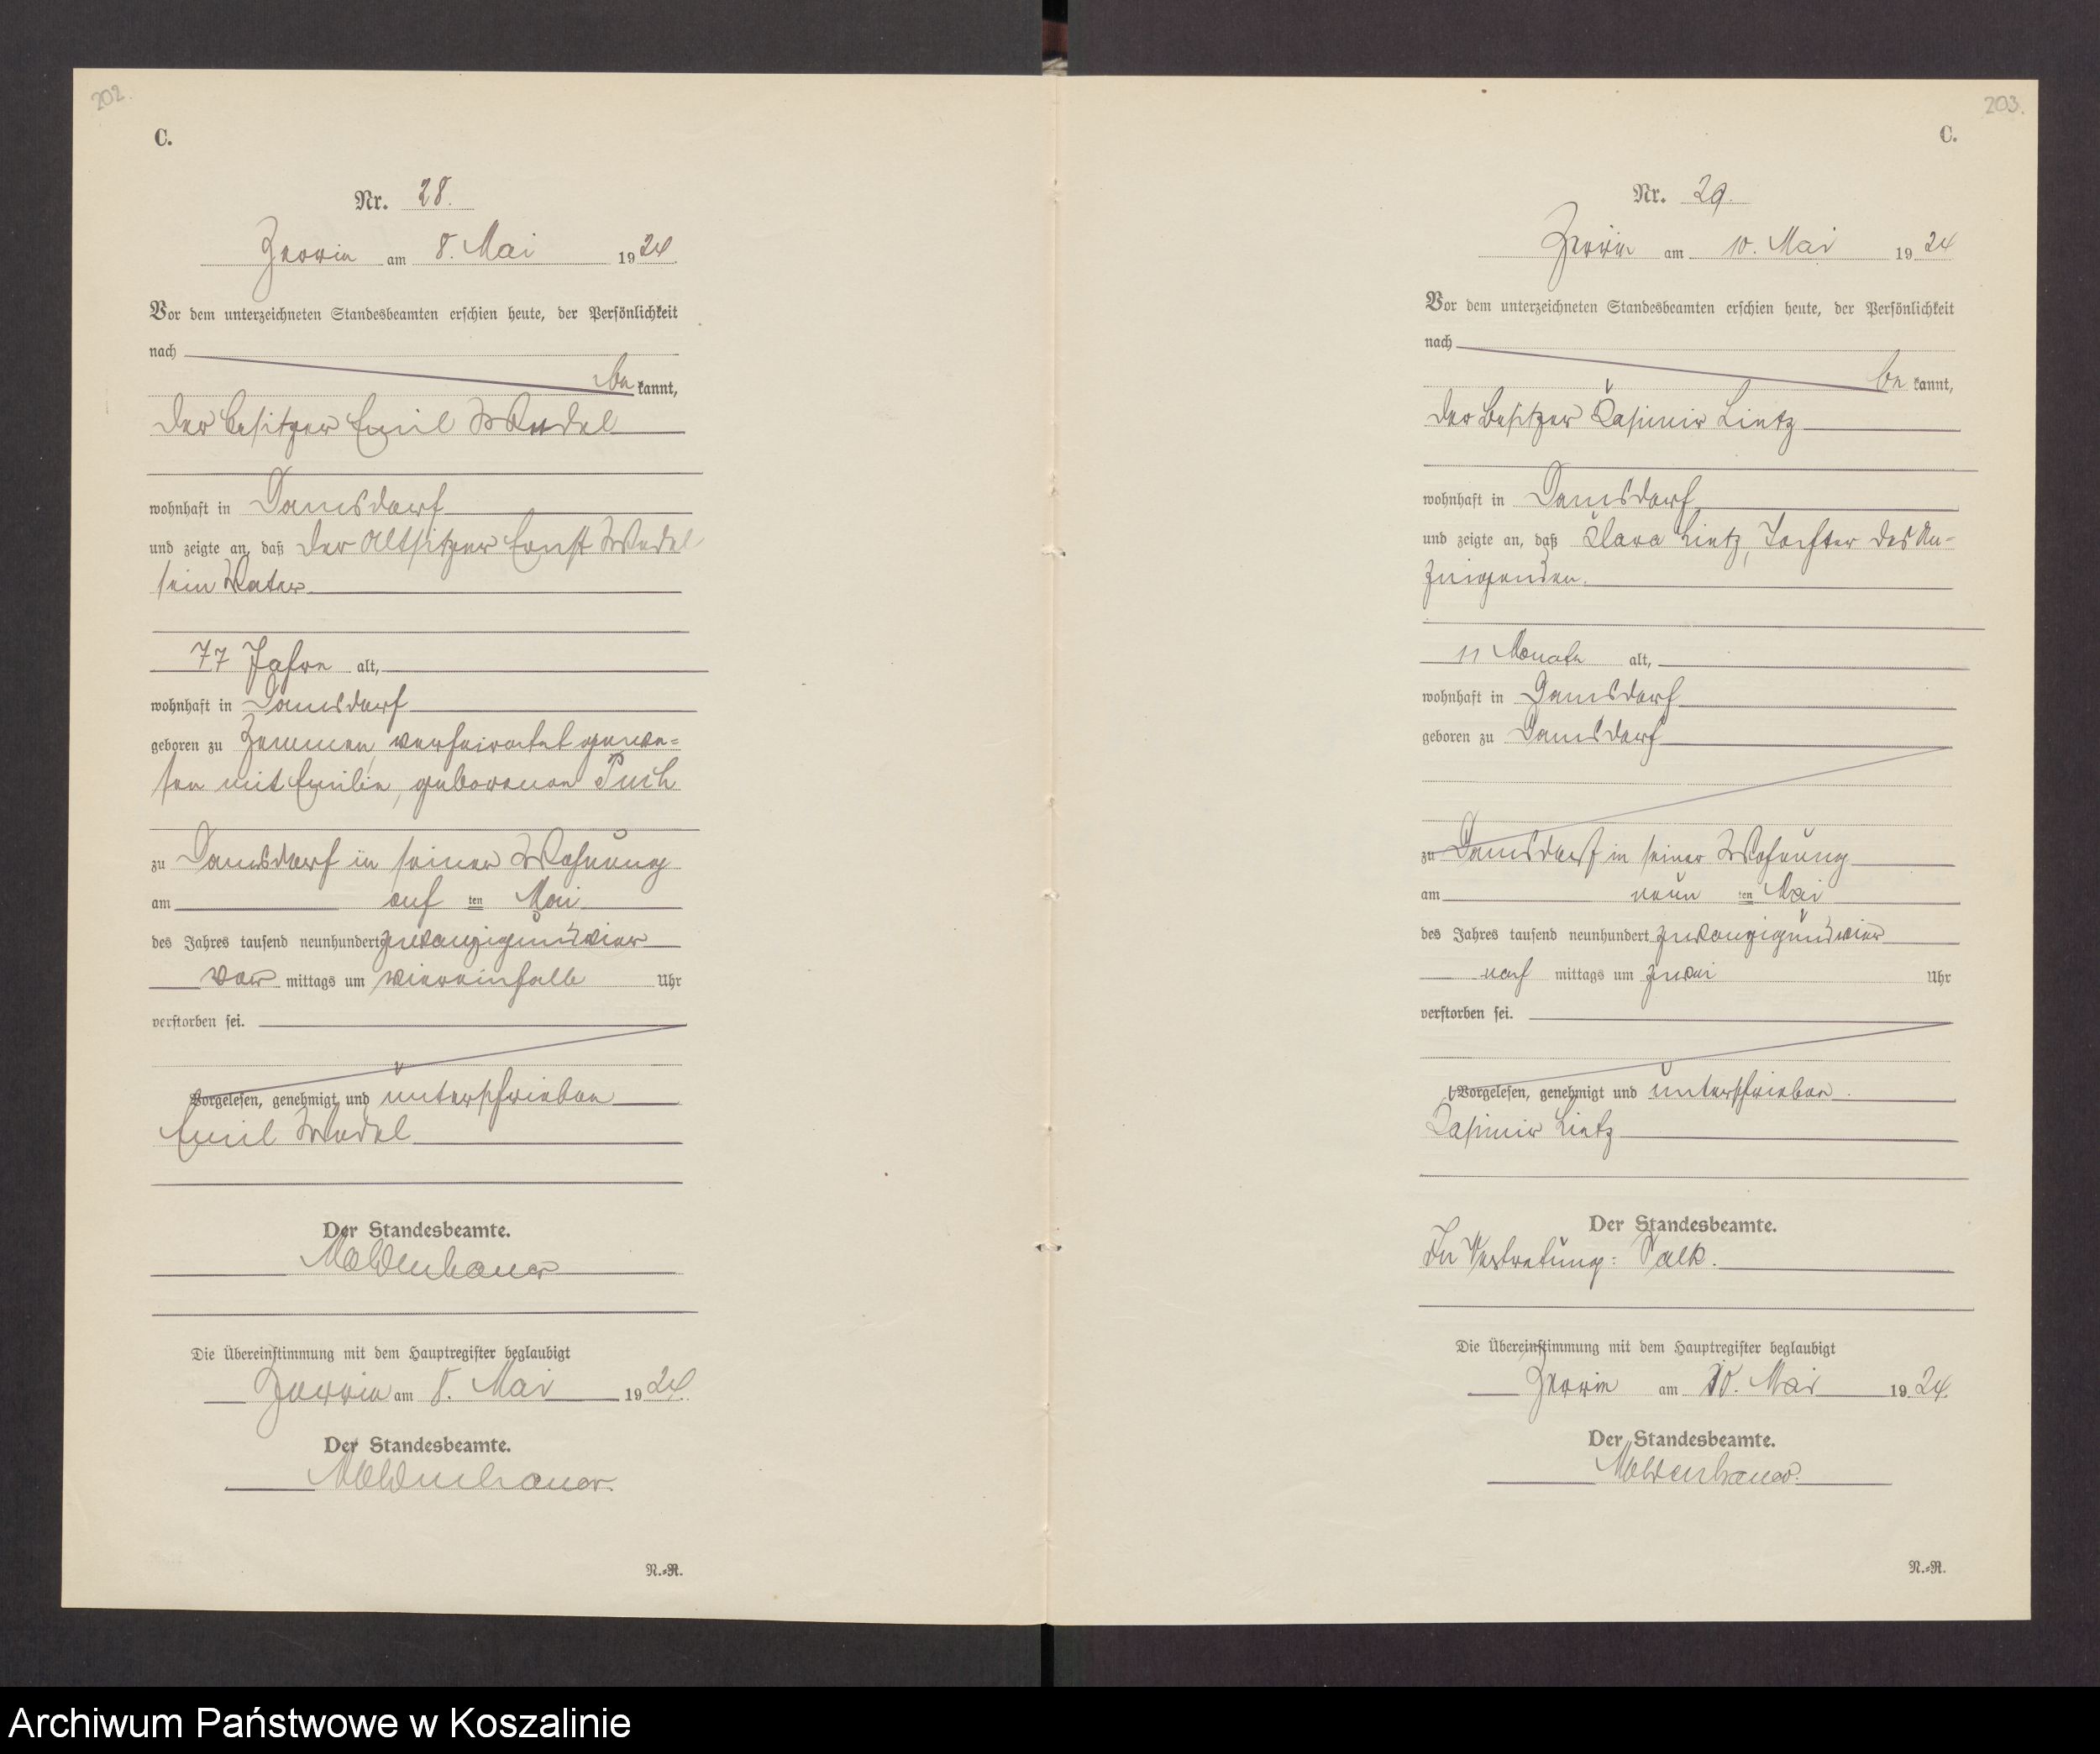 202.
C.
Nr. 28.
Zerrin am 8. Mai 1924
Vor dem unterzeichneten Standesbeamten erschien heute, der Persönlichkeit
nach
be kannt,
der Besitzer Emil Wedel
wohnhaft in Damsdorf
und zeigte an, daß der Altsitzer Ernst Wedel
sein Vater
77 Jahre alt,
wohnhaft in Damsdorf
geboren zu Zemmen, verheiratet gewe=
sen mit Emilie, geborenen Puch
zu Damsdorf in seiner Wohnung
am acht ten Mai
des Jahres tausend neunhundert zwanzigundvier
vor mittags um viereinhalb Uhr
verstorben sei.
Vorgelesen, genehmigt und unterschrieben
Emil Wedel
Der Standesbeamte.
Moldenhauer
Die Übereinstimmung mit dem Hauptregister beglaubigt
Zerrin am 8. Mai 1924.
Der Standesbeamte.
Moldenhauer.
N.=R.
203.
C.
Nr. 29.
Zerrin am 10. Mai 1924
Vor dem unterzeichneten Standesbeamten erschien heute, der Persönlichkeit
nach
be kannt,
der Besitzer Kasimir Lietz
wohnhaft in Damsdorf
und zeigte an, daß Klara Lietz, Tochter des An=
zeigenden.
11 Monate alt,
wohnhaft in Damsdorf
geboren zu Damsdorf
zu Damsdorf in seiner Wohnung
am neun ten Mai
des Jahres tausend neunhundert zwanzigundvier
nach mittags um zwei Uhr
verstorben sei.
Vorgelesen, genehmigt und unterschrieben.
Kasimir Lietz
Der Standesbeamte.
In Vertretung: Palk.
Die Übereinstimmung mit dem Hauptregister beglaubigt
Zerrin am 10. Mai 1924.
Der Standesbeamte.
Moldenhauer.
N.=R.
Archiwum Państwowe w Koszalinie